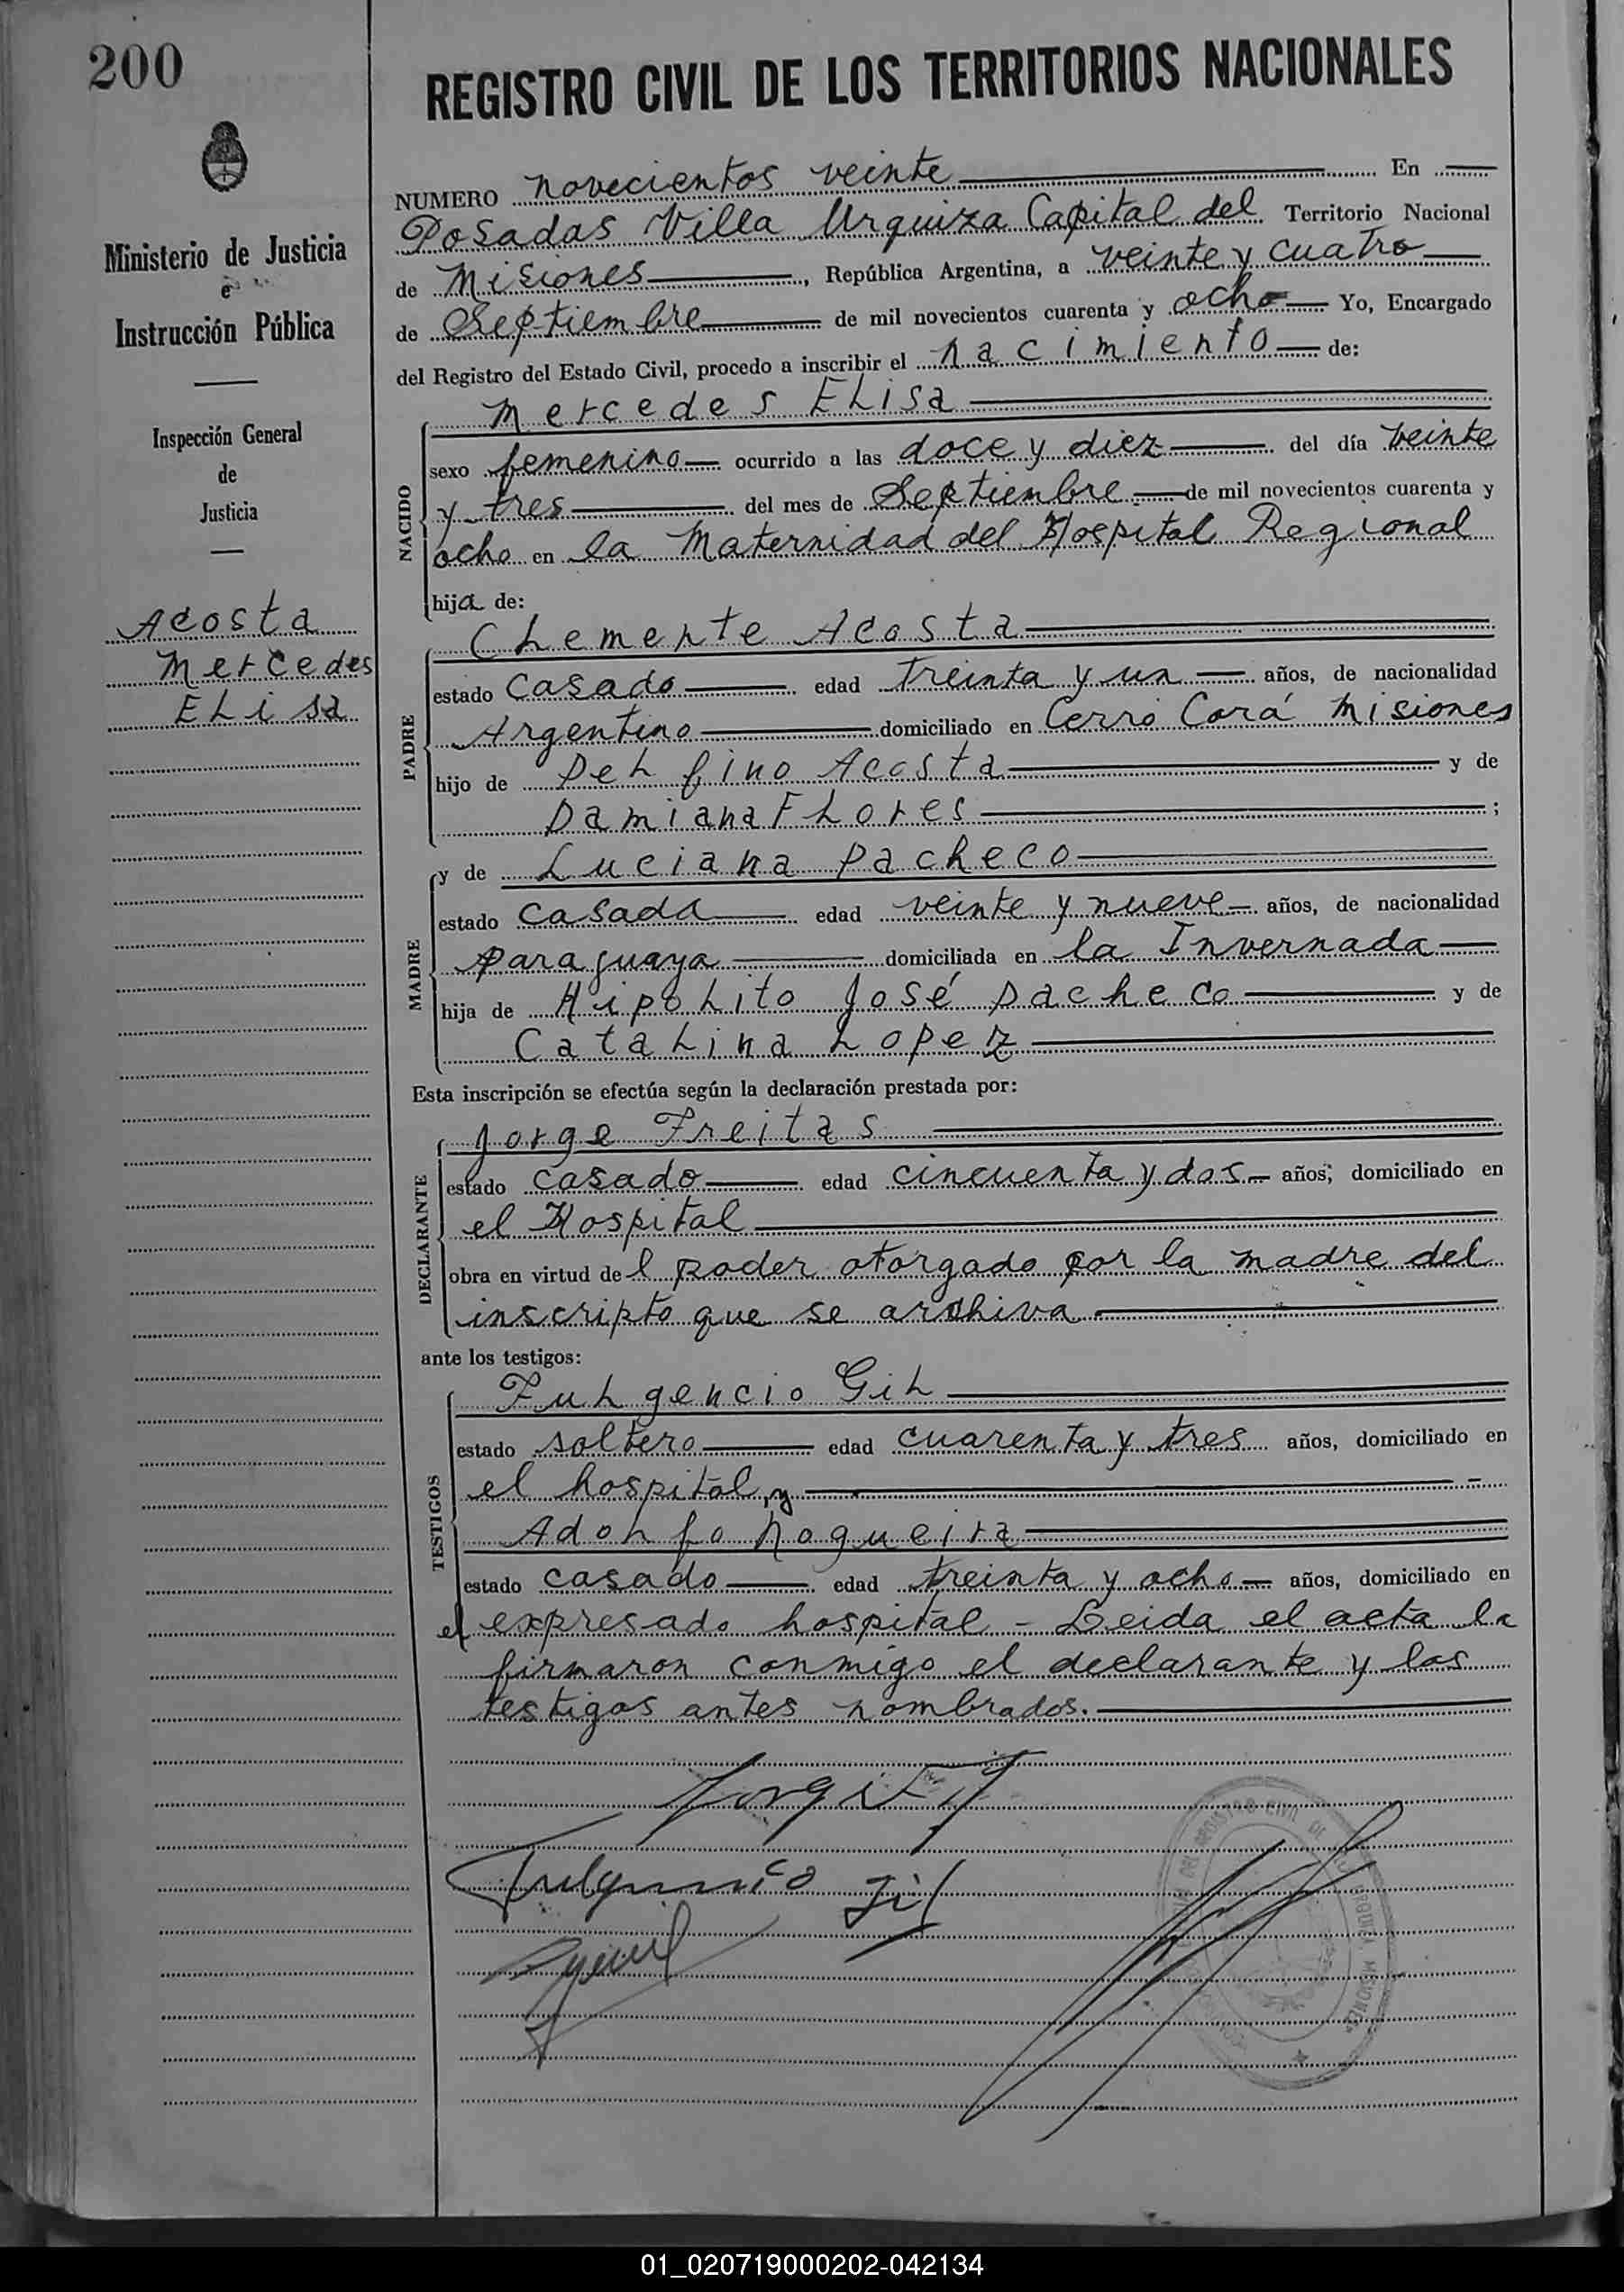 200
REGISTRO CIVIL DE LOS TERRITORIOS NACIONALES
Ministerio de Justicia
e
Instrucción Pública
Inspección General
de
Justicia
Acosta
Mercedes
Elisa
NUMERO novecientos veinte En
Posadas Villa Urquiza Capital del Territorio Nacional
de Misiones, República Argentina, a veinte y cuatro
de Septiembre de mil novecientos cuarenta y ocho Yo, Encargado
del Registro del Estado Civil, procedo a inscribir el nacimiento de:
NACIDO
Mercedes Elisa
sexo femenino ocurrido a las doce y diez del día veinte
y tres del mes de Septiembre de mil novecientos cuarenta y
ocho en la Maternidad del Hospital Regional
hija de:
PADRE
Clemente Acosta
estado casado edad treinta y un años, de nacionalidad
Argentino domiciliado en Cerro Corá Misiones
hijo de Delfino Acosta y de
Damiana Flores;
MADRE
y de Luciana Pacheco
estado casada edad veinte y nueve años, de nacionalidad
paraguaya domiciliada en la Invernada
hija de Hipolito José Pacheco y de
Catalina Lopez
Esta inscripción se efectúa según la declaración prestada por:
DECLARANTE
Jorge Freitas
estado casado edad cincuenta y dos años; domiciliado en
el Hospital
obra en virtud del poder otorgado por la madre del
inscripto que se archiva
ante los testigos:
TESTIGOS
Fulgencio Gil
estado soltero edad cuarenta y tres años, domiciliado en
el hospital, y
Adolfo Nogueira
estado casado edad treinta y ocho años, domiciliado en
el expresado hospital - Leida el acta la
firmaron conmigo el declarante y los
testigos antes nombrados.
Fulgencio Gil
01_020719000202-042134